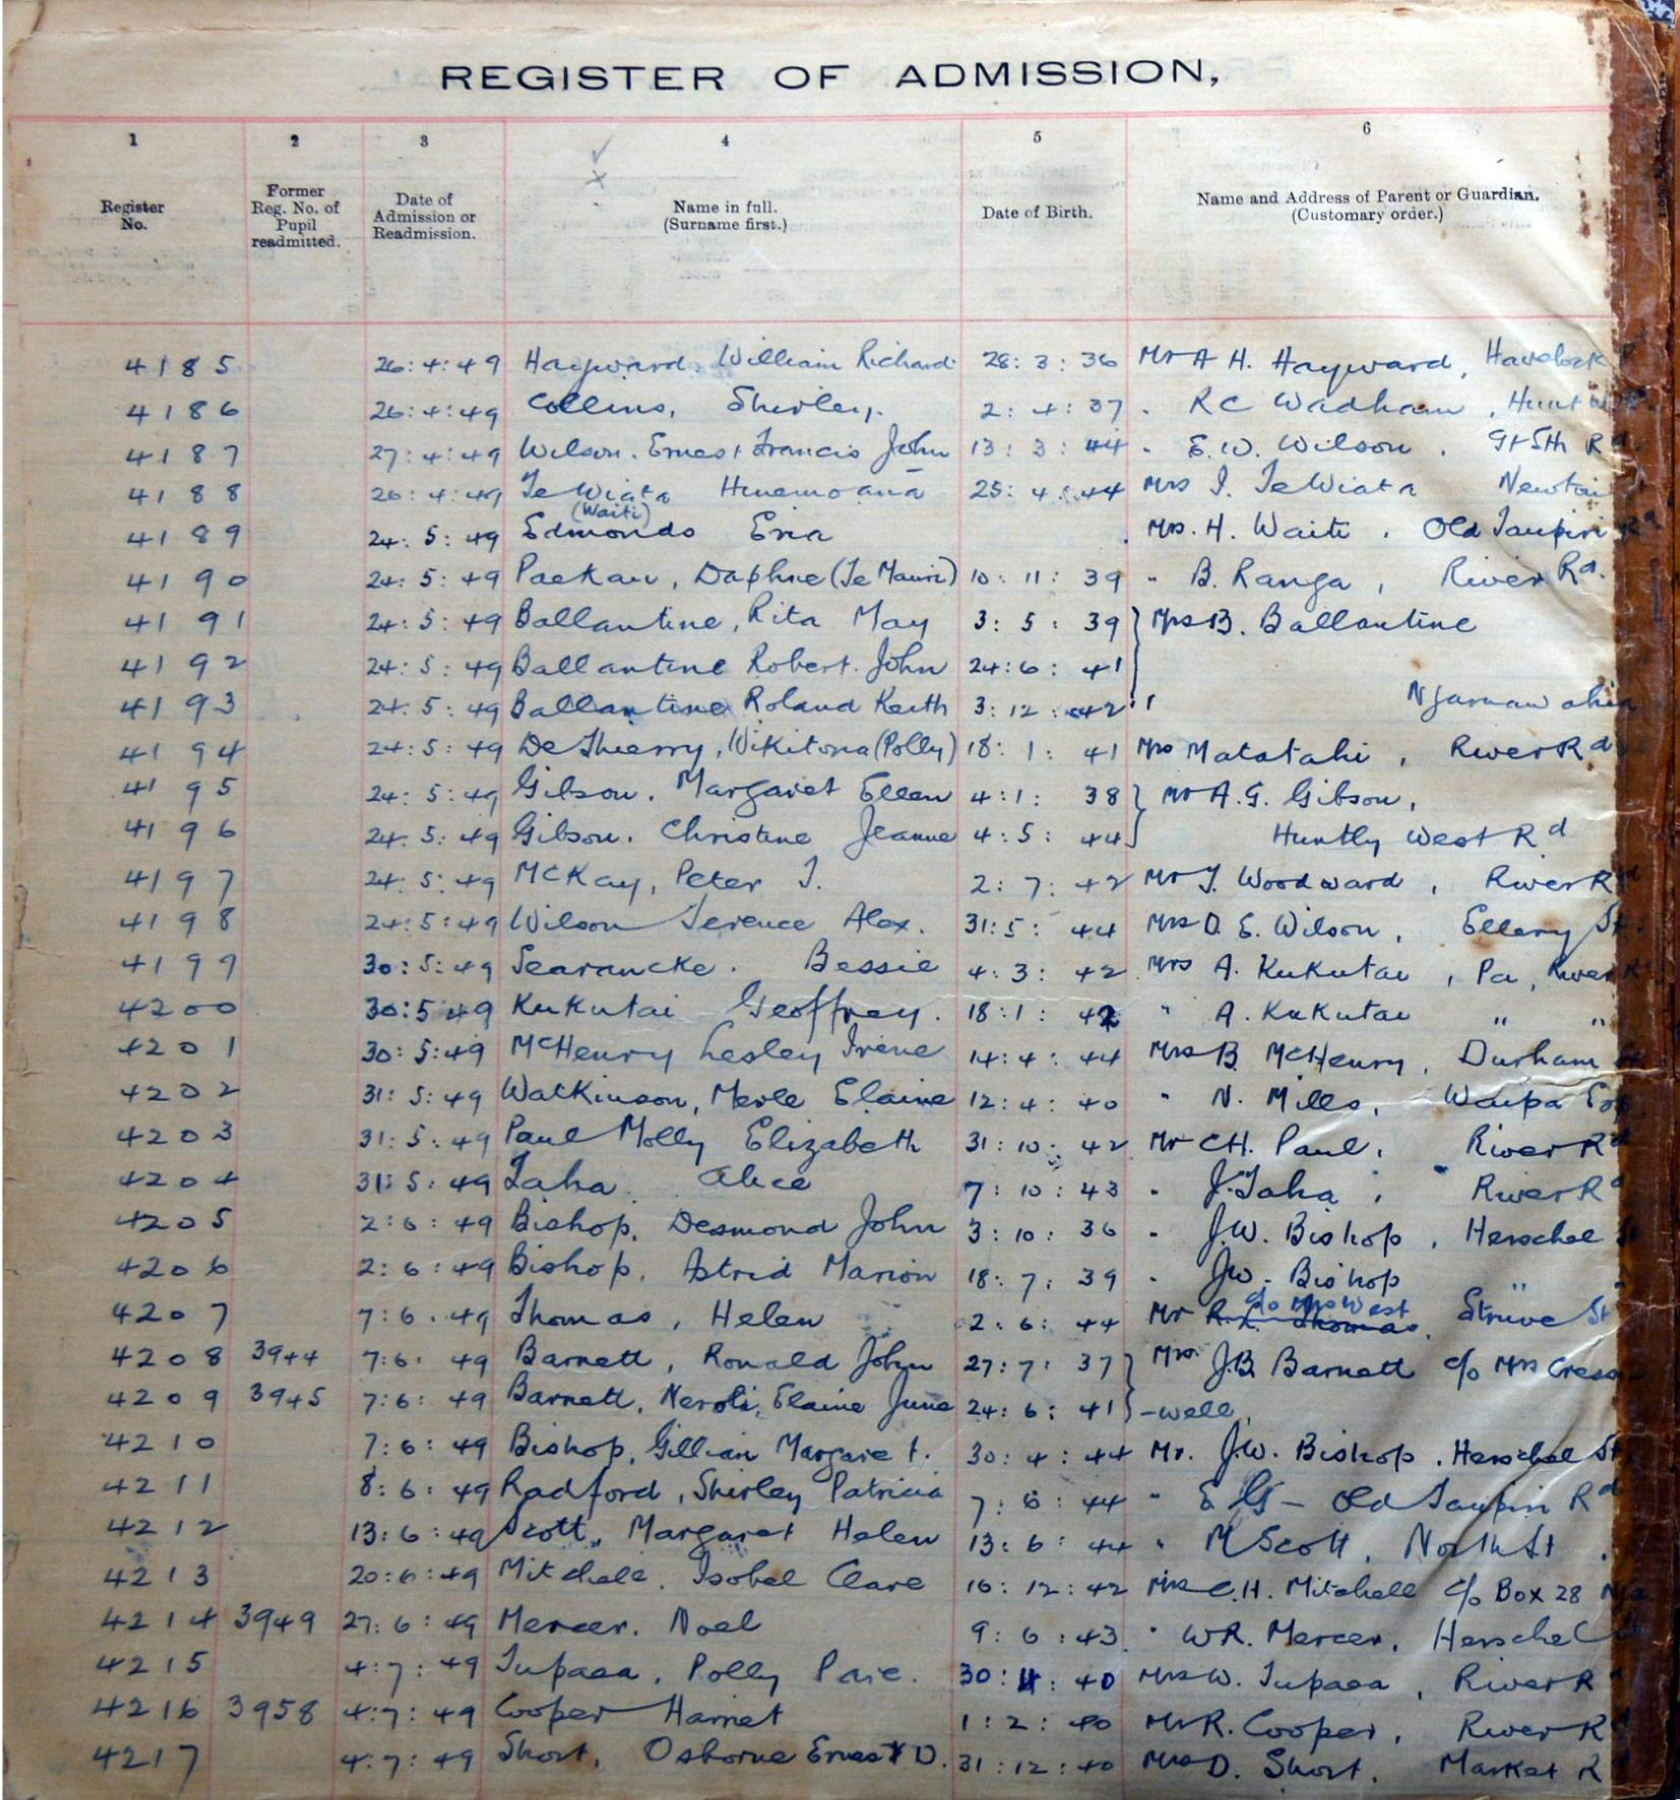 REGISTER OF ADMISSION,
1 2 3 4 5 6
Register No. Former Reg. No. of Pupil readmitted. Date of Admission or Readmission. Name in full. (Surname first.) Date of Birth. Name and Address of Parent or Guardian. (Customary order.)
4185 26:4:49 Hayward William Richard 28:3:36 Mr A H. Hayward, Havelock
4186 26:4:49 Collins, Shirley. 2:4:37 " RC Wadham,
4187 27:4:49 Wilson. Ernest Francis John 13:3:44 " E.W. Wilson. Gt Sth Rd
4188 26:4:49 TeWiata Hinemoana 25:4:44 Mrs I. TeWiata
(Waiti)
4189 24:5:49 Edmonds Eria Mrs. H. Waiti. Old Taupiri Rd
4190 24:5:49 Paekau, Daphne (Te Mauri) 10:11:39 " B. Ranga, River Rd.
4191 24:5:49 Ballantine, Rita May 3:5:39 } Mrs B. Ballantine
4192 24:5:49 Ballantine Robert John 24:6:41
4193 24:5:49 Ballantine Roland Keith 3:12:42 Ngaruawahia
4194 24:5:49 DeThierry, Wikitoria (Polly) 18:1:41 Mrs Matatahi, River Rd
4195 24:5:49 Gibson. Margaret Ellen 4:1:38 } Mr A.G. Gibson,
4196 24:5:49 Gibson. Christine Jeanne 4:5:44 Huntly West Rd
4197 24:5:49 McKay, Peter J. 2:7:42 Mr J. Woodward, River Rd
4198 24:5:49 Wilson Terence Alex. 31:5:44 Mrs D. E. Wilson, Ellery St.
4199 30:5:49 Searancke. Bessie 4:3:42 Mrs A. Kukutai, Pa, River Rd
4200 30:5:49 Kukutai Geoffrey. 18:1:42 " A. Kukutai " "
4201 30:5:49 McHenry Lesley Irene 14:4:44 Mrs B. McHenry, Durham St
4202 31:5:49 Watkinson, Merle Elaine 12:4:40 " N. Mills, Waipa Esp
4203 31:5:49 Paul Molly Elizabeth 31:10:42 Mr CH. Paul, River Rd
4204 31:5:49 Taha Alice 7:10:43 " J. Taha, River Rd
4205 2:6:49 Bishop, Desmond John 3:10:36 " J.W. Bishop, Herschel St
4206 2:6:49 Bishop, Astrid Marion 18:7:39 " J.W. Bishop " "
c/o Mrs West
4207 7:6:49 Thomas, Helen 2:6:44 Mr R. L. Thomas, Struve St
4208 3944 7:6:49 Barnett, Ronald John 27:7:37 } Mrs J.B. Barnett c/o Mrs Cress
4209 3945 7:6:49 Barnett, Neroli, Elaine June 24:6:41 } -well,
4210 7:6:49 Bishop, Gillian Margaret. 30:4:44 Mr. J.W. Bishop. Herschel St
4211 8:6:49 Radford, Shirley Patricia 7:6:44 " E G - Old Taupiri Rd
4212 13:6:49 Scott, Margaret Helen 13:6:44 " M Scott, North St.
4213 20:6:49 Mitchell. Isobel Clare 16:12:42 Mrs C.H. Mitchell c/o Box 28
4214 3949 27:6:49 Mercer. Noel 9:6:43 " WR. Mercer, Herschel St
4215 4:7:49 Tupaea, Polly Paie. 30:11:40 Mrs W. Tupaea, River Rd
4216 3958 4:7:49 Cooper Harriet 1:2:40 Mr R. Cooper, River Rd
4217 4:7:49 Short, Osborne Ernest D. 31:12:40 Mrs D. Short. Market R